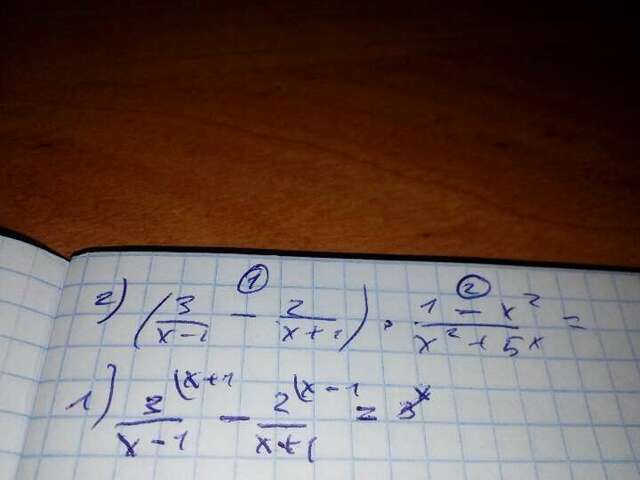 ① ②
2) (3/x-1 - 2/x+1) · 1-x²/x²+5x =
1) 3(x+1/x-1 - 2(x-1/x+1 = 3x